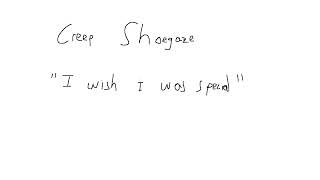 Creep Shoegaze
"I wish I was special"